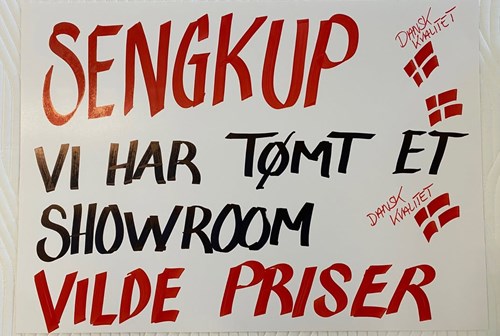 SENGKUP
DANSK
KVALITET
VI HAR TØMT ET
SHOWROOM
DANSK
KVALITET
VILDE PRISER